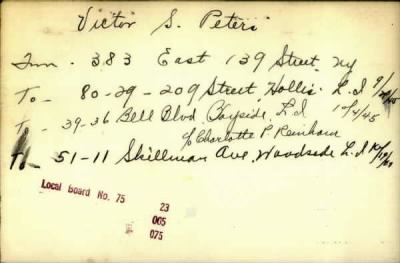 Victor S. Peters
Frm. 383 East 139 Street, Ny
To - 80-29-209 Street, Hollis. L.I
To - 39-36 Bell Blvd. Bayside, L.I 10/4/45
c/o Charlotte P. Reinhard
To - 51-11 Skillman Ave, Woodside L.I
Local Board No. 75 23
005
075